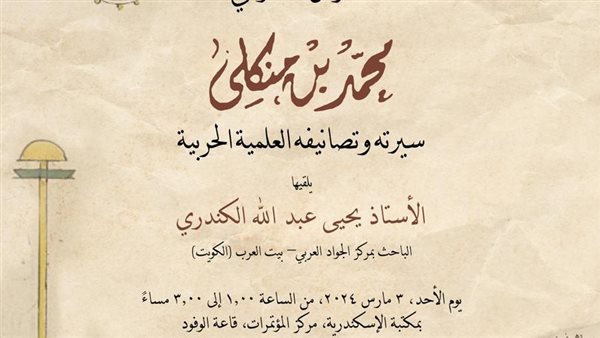 محمد بن منكلى
سيرته وتصانيفه العلمية الحربية
يلقيها
الأستاذ يحيى عبد الله الكندري
الباحث بمركز الجواد العربي– بيت العرب (الكويت)
يوم الأحد، ٣ مارس ٢٠٢٤، من الساعة ١,٠٠ إلى ٣,٠٠ مساءً
بمكتبة الإسكندرية، مركز المؤتمرات، قاعة الوفود